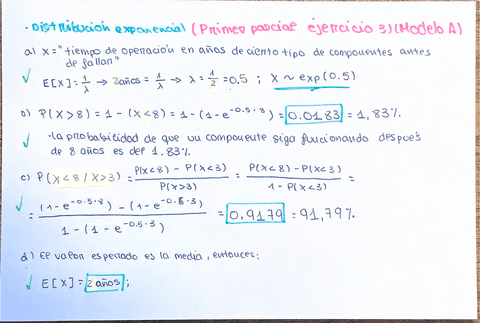 · Distribución exponencial (Primer parcial ejercicio 3)(Modelo A)
a) X = "tiempo de operación en años de cierto tipo de componentes antes
de fallar"
✓ E[X] = 1/λ → 2años = 1/λ → λ = 1/2 = 0.5 ; X ~ exp(0.5)
b) P(X>8) = 1 - (X<8) = 1 - (1 - e^-0.5·8) = 0.0183 = 1,83%.
✓ · la probabilidad de que un componente siga funcionando después
de 8 años es del 1.83%.
c) P(X<8/X>3) = P(X<8) - P(X<3) / P(X>3) = P(X<8) - P(X<3) / 1 - P(X<3) =
✓ = (1 - e^-0.5·8) - (1 - e^-0.5·3) / 1 - (1 - e^-0.5·3) = 0,9179 = 91,79%.
d) El valor esperado es la media, entonces:
✓ E[X] = 2 años ;